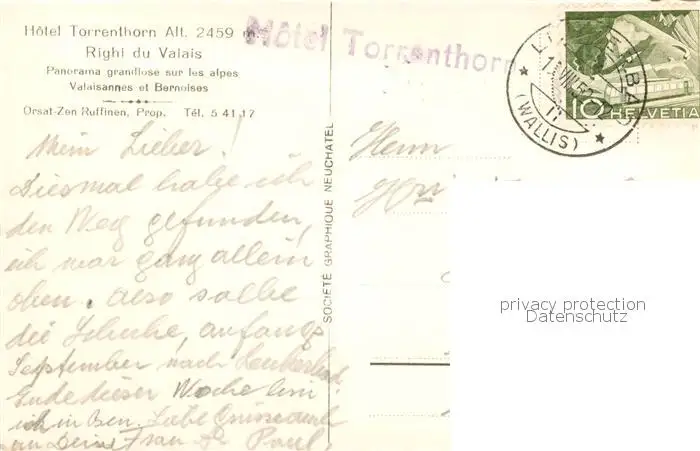 Hôtel Torrenthorn Alt. 2459 m
Righi du Valais
Panorama grandiose sur les alpes
Valaisannes et Bernoises
Orsat-Zen Ruffinen, Prop. Tél. 5 41 17
Hôtel Torrenthorn
(WALLIS)
10 HELVETIA
Mein Lieber!
Diesmal habe ich
den Weg gefunden,
ich war ganz allein
oben. Also
die anfangs
September nach
Ende dieser Woche bin
ich in Liebe
an Deine Frau Paul.
SOCIÉTÉ GRAPHIQUE NEUCHATEL
Herrn
privacy protection
Datenschutz